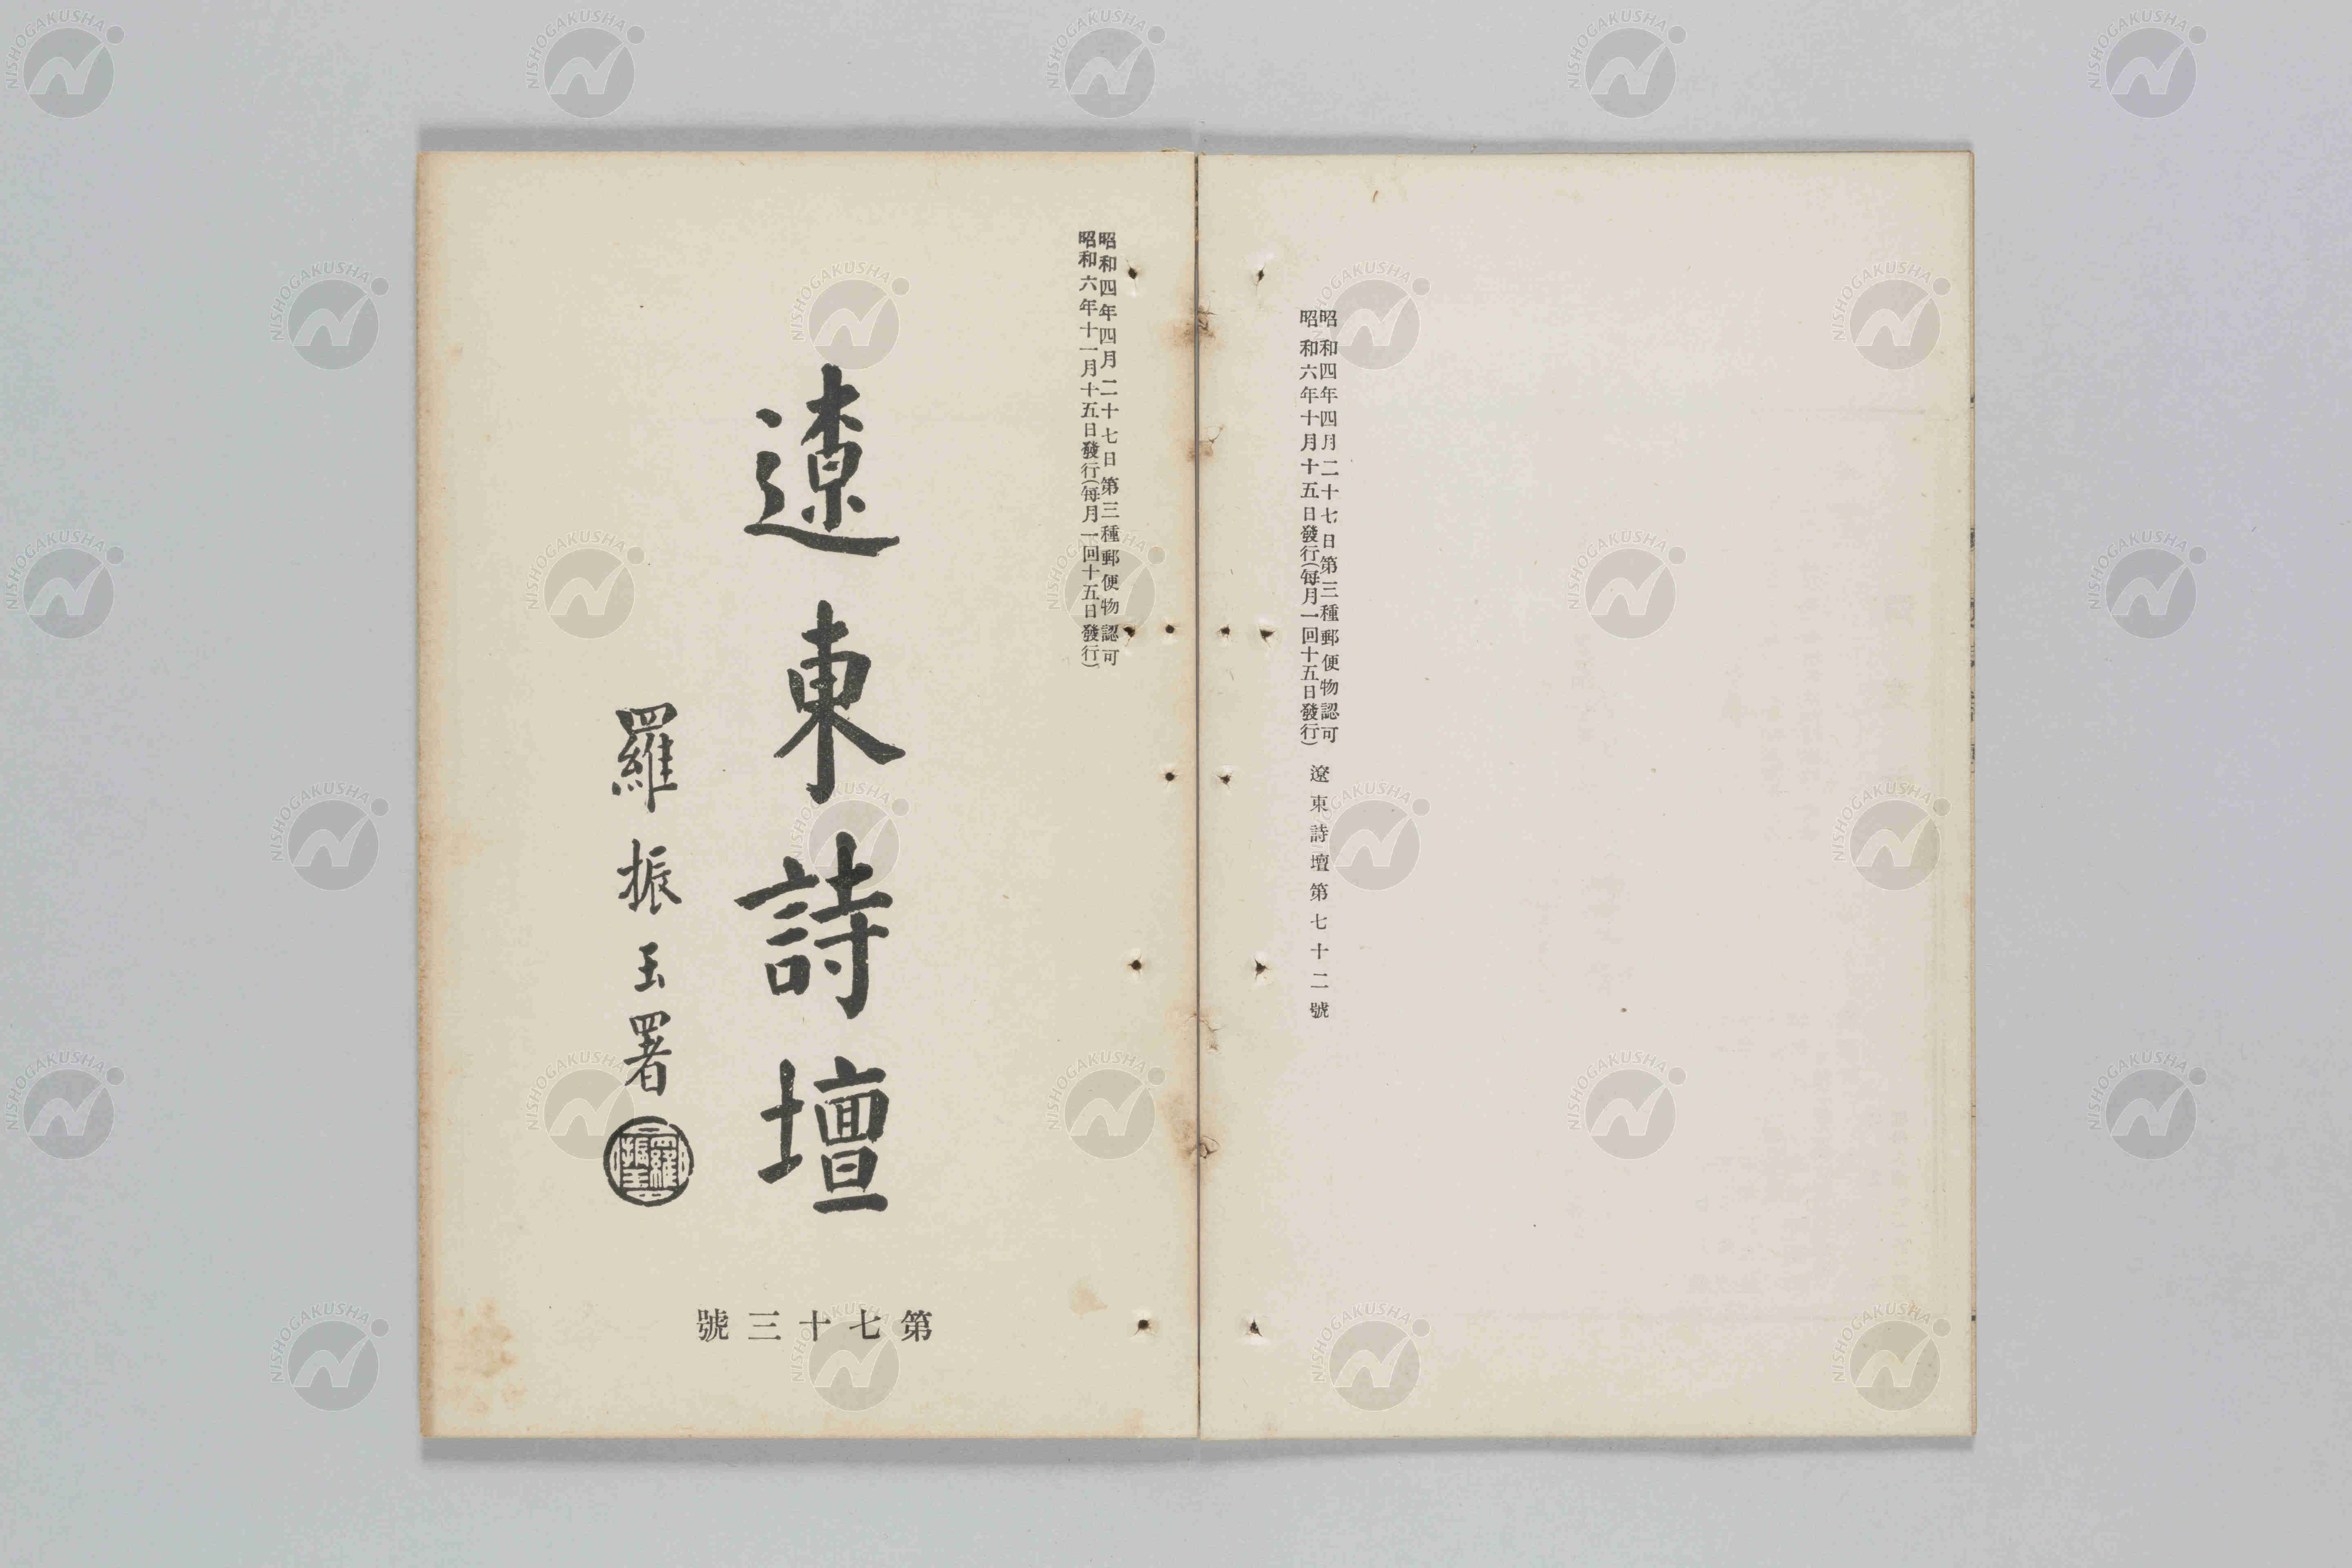 昭和四年四月二十七日第三種郵便物認可
昭和六年十月十五日發行(每月一回十五日發行)
遼東詩壇第七十二號
昭和四年四月二十七日第三種郵便物認可
昭和六年十一月十五日發行(每月一回十五日發行)
遼東詩壇
羅振玉署
羅振玉
第七十三號
NISHOGAKUSHA